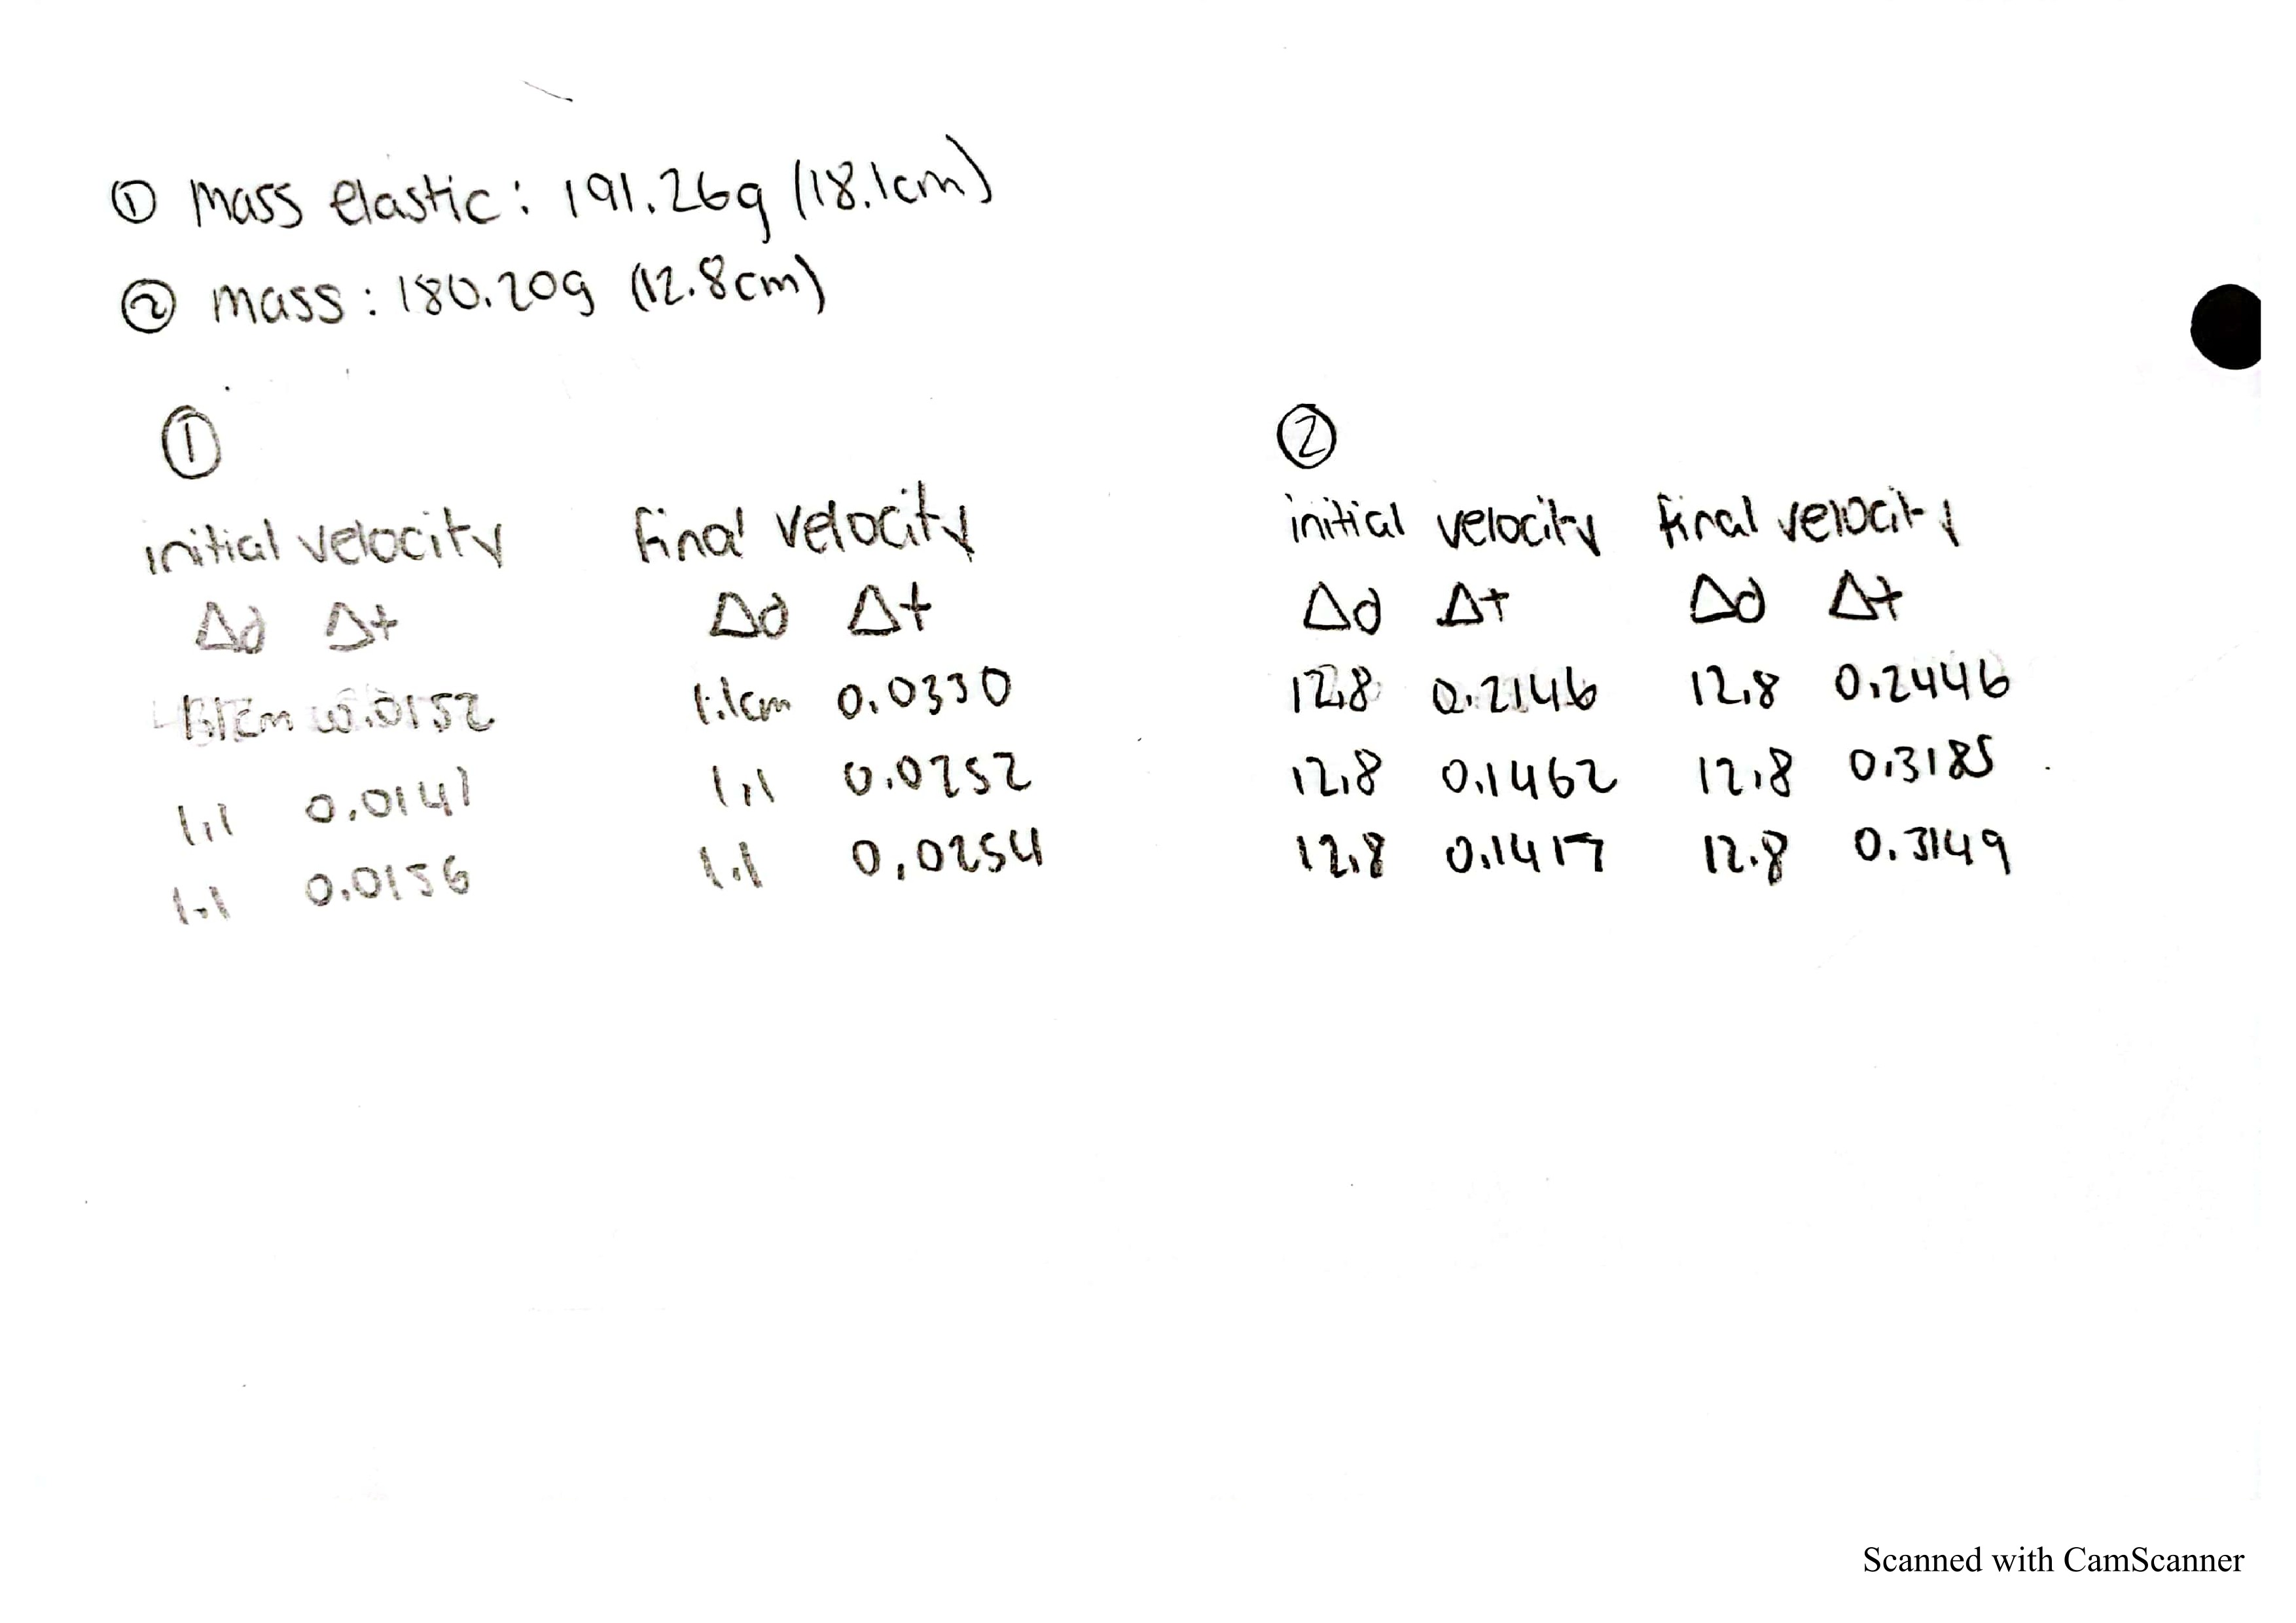 ① Mass elastic: 191.26g (18.1cm)
② mass: 180.20g (12.8cm)
①
initial velocity final velocity
Δd Δt Δd Δt
0.0152 1.1cm 0.0330
1.1 0.0141 1.1 0.0252
1.1 0.0156 1.1 0.0254
②
initial velocity final velocity
Δd Δt Δd Δt
12.8 0.2146 12.8 0.2446
12.8 0.1462 12.8 0.3185
12.8 0.1417 12.8 0.3149
Scanned with CamScanner